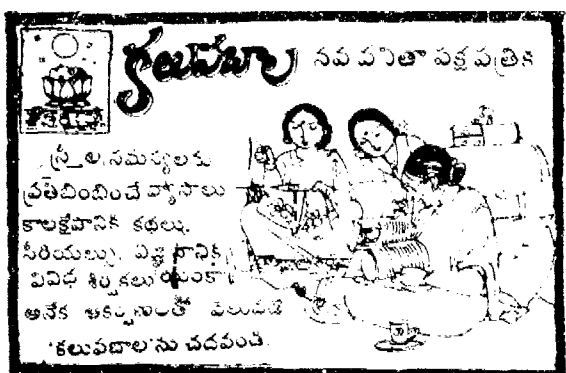 కలువబాల
నవ వనితా పక్ష పత్రిక
స్త్రీల సమస్యలను
ప్రతిబింబించే వ్యాసాలు
కాలక్షేపానికి కథలు,
సీరియల్సు,
వివిధ శీర్షికలు యింకా
అనేక ఆకర్షణలతో వెలువడే
'కలువబాల'ను చదవండి.